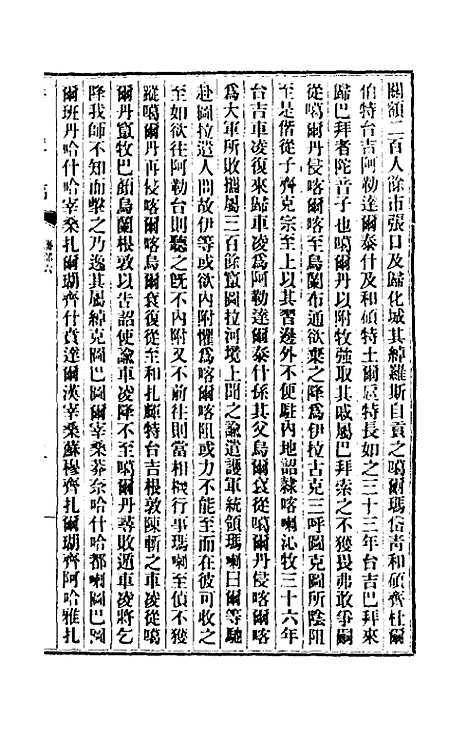 關額二百人餘市張口及歸化城其綽羅斯自貢之噶爾瑪岱青和碩齊杜爾
伯特台吉阿勒達爾泰什及和碩特土爾扈特長如之三十三年台吉巴拜來
歸巴拜者陀音子也噶爾丹以附牧強取其戚屬巴拜索之不獲畏弗敢爭嗣
從噶爾丹侵喀爾喀至烏蘭布通欲棄之降爲伊拉古克三呼圖克圖所陰阻
至是偕從子齊克宗至上以其習邊外不便駐內地詔隸喀喇沁牧三十六年
台吉車凌復來歸車凌爲阿勒達爾泰什孫其父烏爾袞從噶爾丹侵喀爾喀
爲大軍所敗攜屬三百餘竄圖拉河境上聞之諭遣護軍統領瑪喇曰爾等馳
赴圖拉遣人問故伊等或欲內附懼爲喀爾喀阻或力不能至而在彼可收之
至如欲往阿勒台則聽之旣不內附又不前往則當相機行事瑪喇至偵不獲
蹤噶爾丹再侵喀爾喀烏爾袞復從至和扎輝特台吉根敦陳斬之車凌從噶
爾丹竄牧巴顏烏蘭根敦以吿詔使諭車凌降不至噶爾丹尋敗遁車凌將乞
降我師不知而擊之乃逸其屬綽克圖巴圖爾宰桑莽奈哈什哈都喇圖巴圖
爾班丹哈什哈宰桑扎爾瑚齊什賁達爾漢宰桑蘇穆齊扎爾瑚齊阿哈雅扎
藩部六